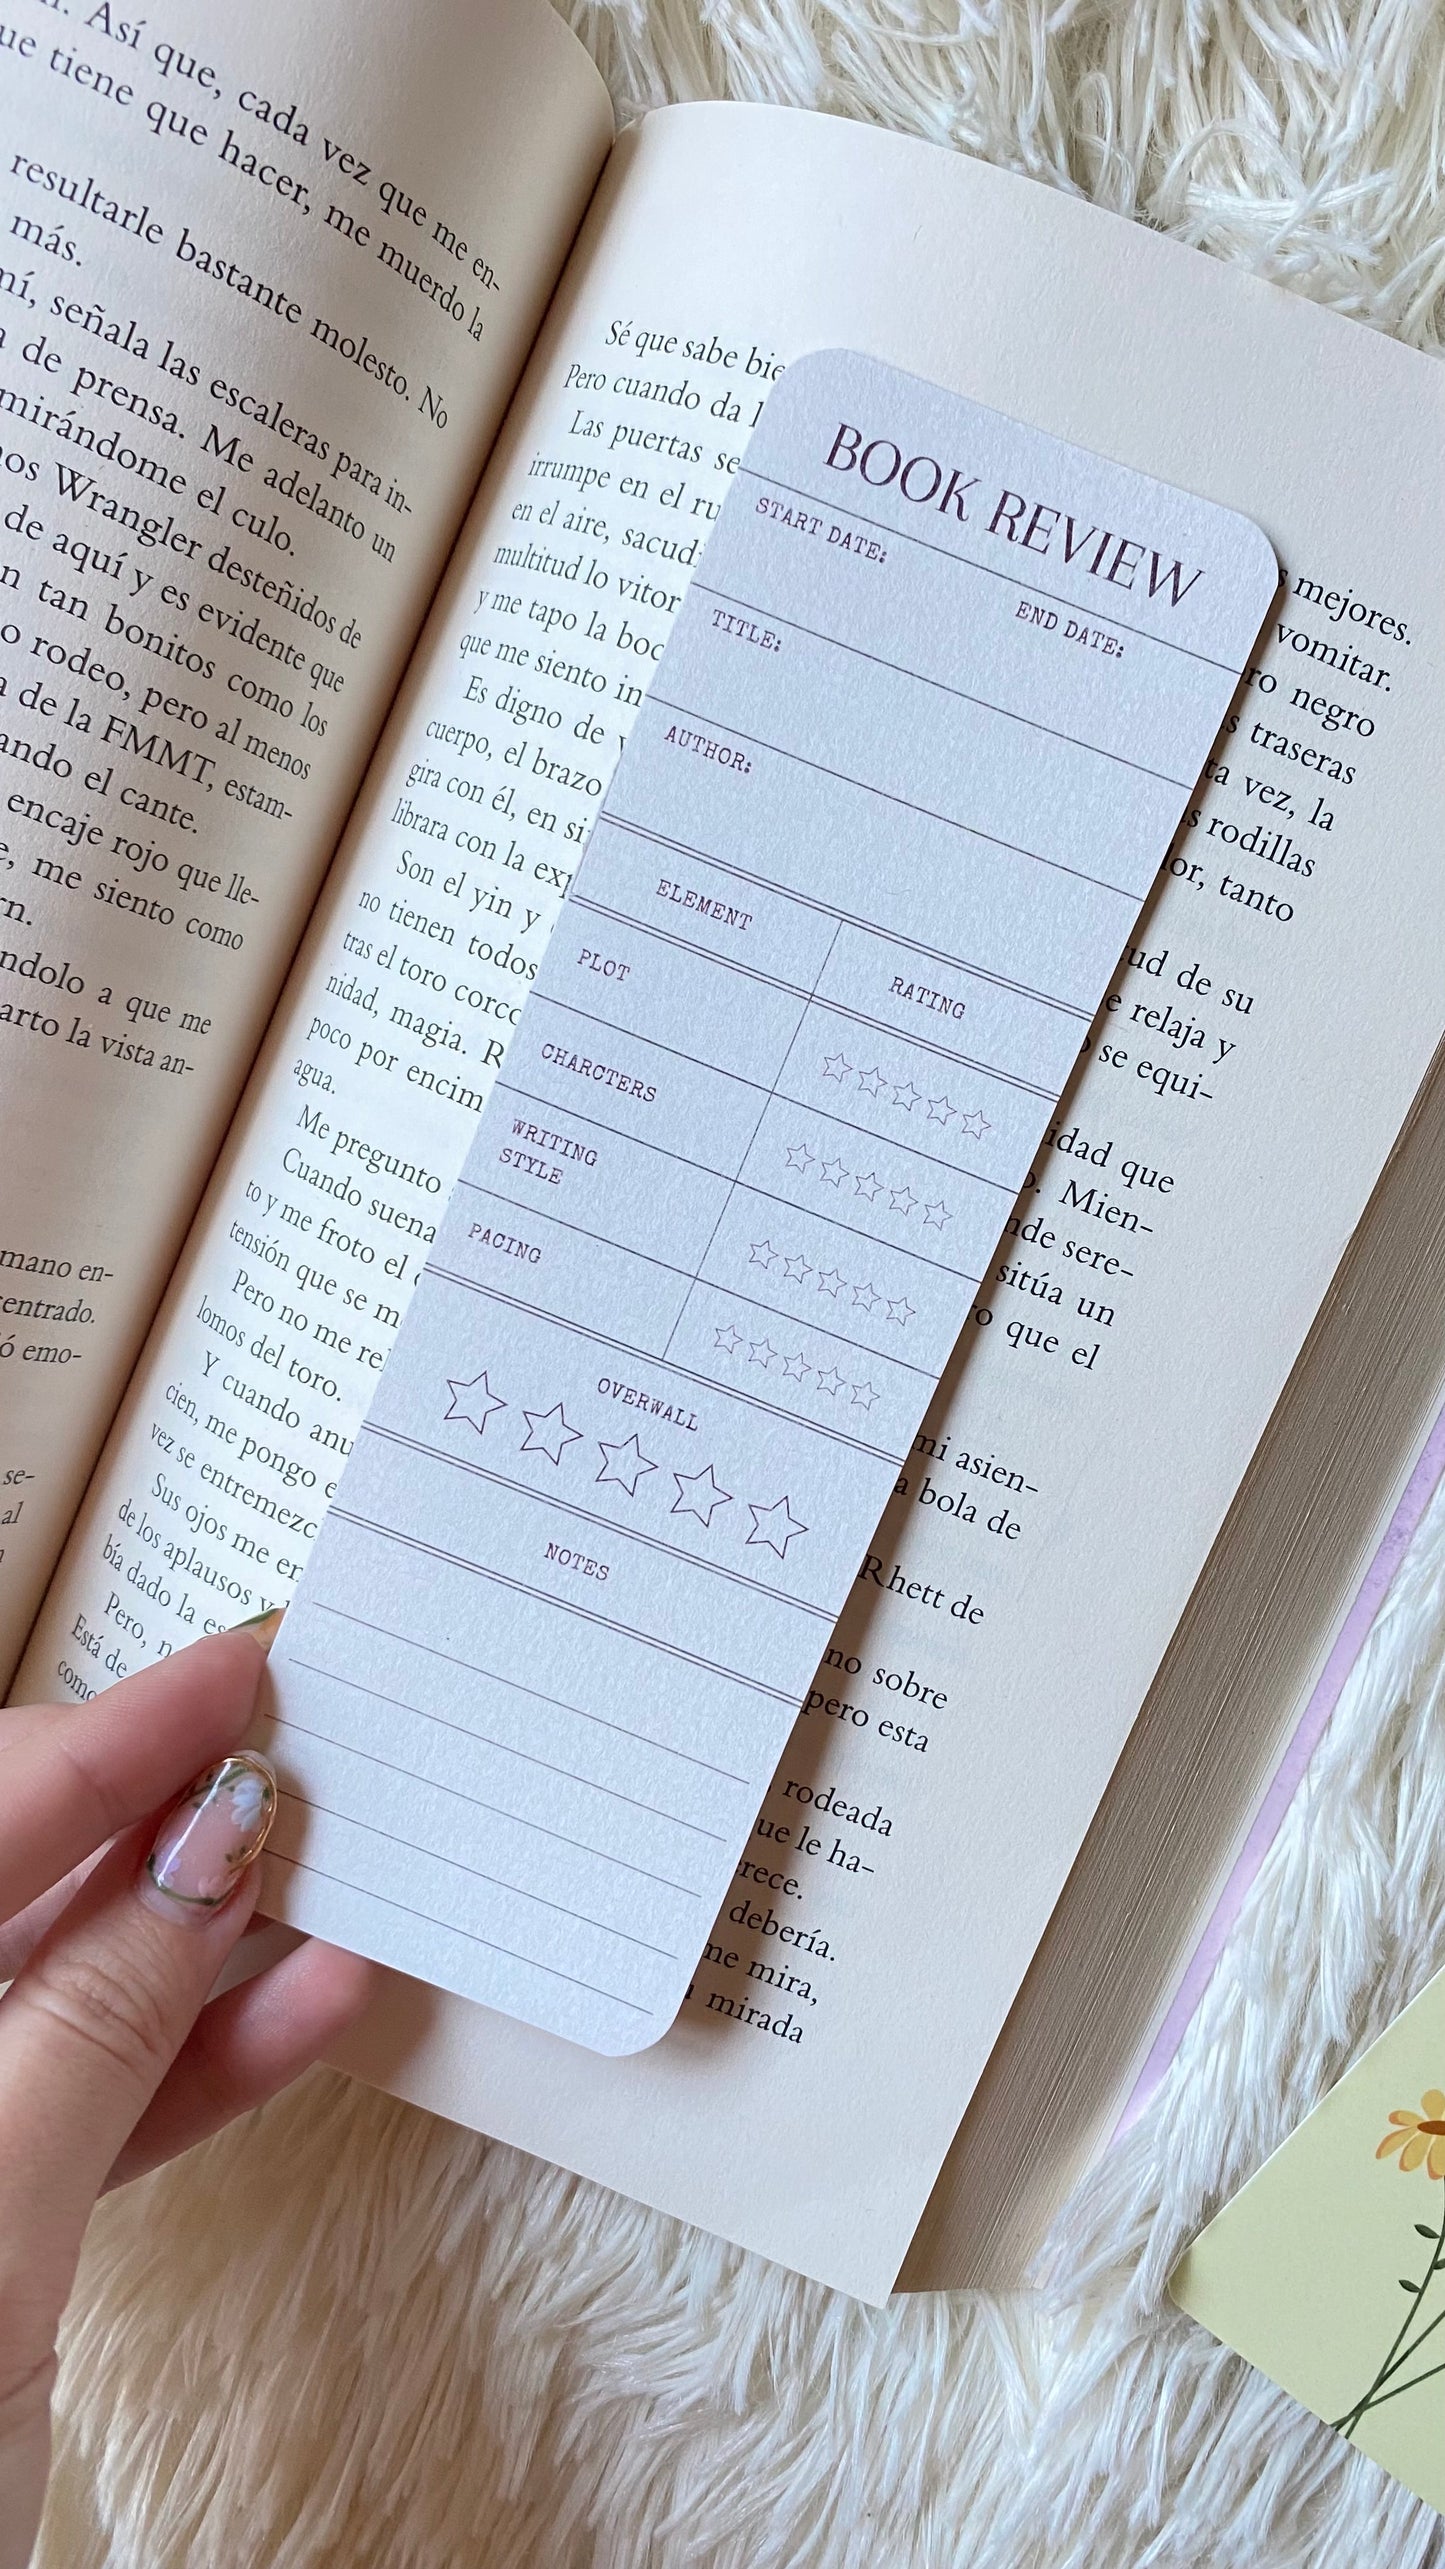 . Así que, cada vez que me en-
ue tiene que hacer, me muerdo la
resultarle bastante molesto. No
más.
mí, señala las escaleras para in-
de prensa. Me adelanto un
mirándome el culo.
os Wrangler desteñidos de
de aquí y es evidente que
n tan bonitos como los
o rodeo, pero al menos
a de la FMMT, estam-
ando el cante.
encaje rojo que lle-
e, me siento como
rn.
ndolo a que me
arto la vista an-
mano en-
entrado.
ó emo-
se-
al
Sé que sabe bie
Pero cuando da l
Las puertas se
irrumpe en el ru
en el aire, sacud
multitud lo vitor
y me tapo la boc
que me siento in
Es digno de v
cuerpo, el brazo
gira con él, en si
librara con la exp
Son el yin y
no tienen todos
tras el toro corco
nidad, magia. R
poco por encim
agua.
Me pregunto
Cuando suena
to y me froto el
tensión que se m
Pero no me re
lomos del toro.
Y cuando anu
cien, me pongo e
vez se entremezc
Sus ojos me en
de los aplausos y
bía dado la es
Pero, n
Está de
como
BOOK REVIEW
START DATE:
END DATE:
TITLE:
AUTHOR:
ELEMENT
RATING
PLOT
CHARCTERS
WRITING
STYLE
PACING
OVERWALL
NOTES
s mejores.
vomitar.
ro negro
s traseras
ta vez, la
s rodillas
lor, tanto
ud de su
e relaja y
se equi-
idad que
o. Mien-
nde sere-
sitúa un
o que el
mi asien-
a bola de
Rhett de
no sobre
pero esta
rodeada
ue le ha-
rece.
debería.
me mira,
mirada